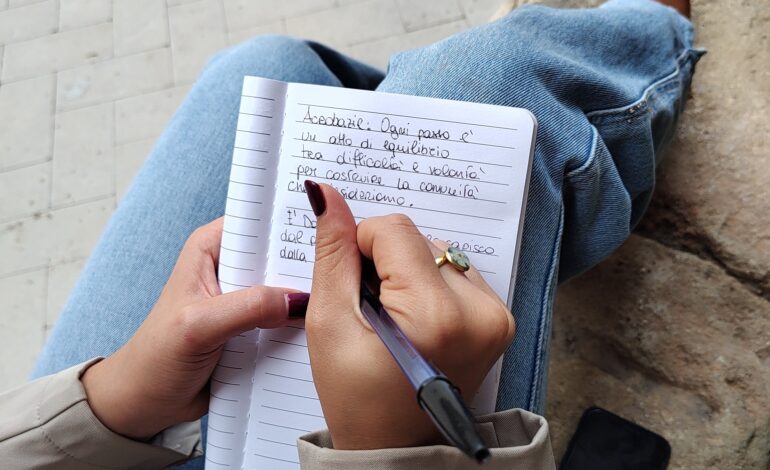 Acrobazie: Ogni passo è
un atto di equilibrio
tra difficoltà e volontà
per costruire la comunità
che desideriamo.
È
dal capisco
dalla